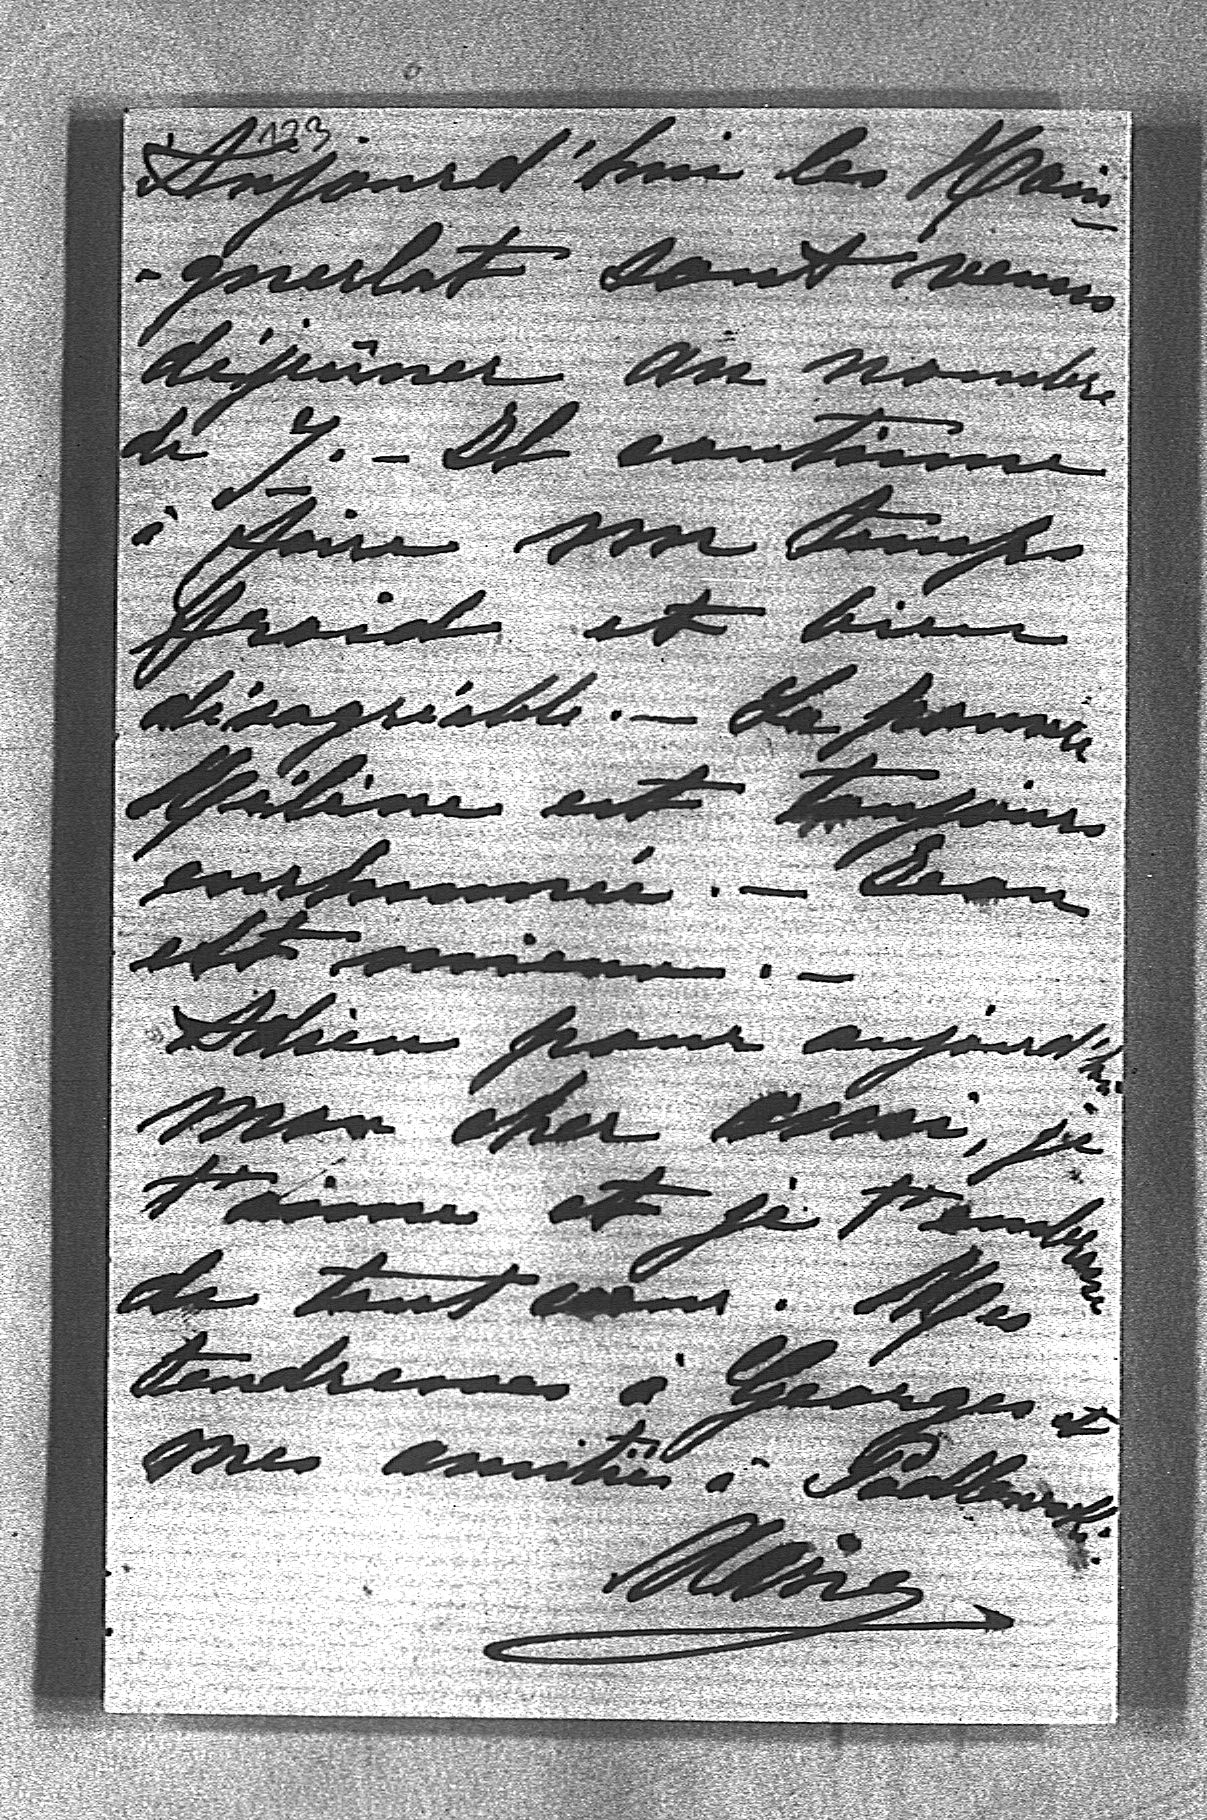 123
Aujourd'hui les Main-
-guerlot sont venus
déjeûner au nombre
de 7. - Il continue
à faire un temps
froid et bien
désagréable. - La pauvre
Méline est toujours
enrhumée. -
est mieux. -
Adieu pour aujourd'hui
mon cher ami, je
t'aime et je t'embrasse
de tout cœur. Mes
tendresses à Georges et
mes amitiés à Padlewski.
Marie